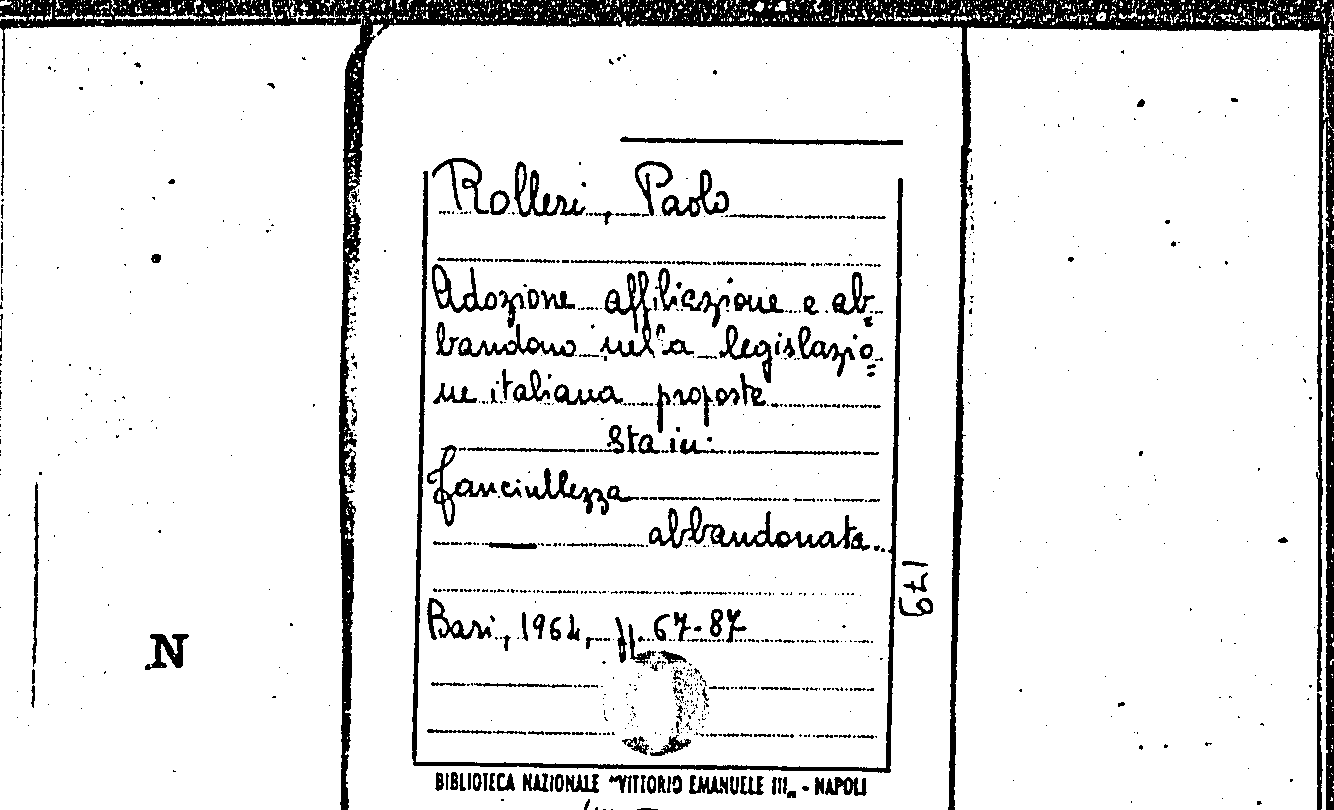 Rolleri, Paolo
Adozione affiliazione e ab=
bandono nella legislazio=
ne italiana proposte
Sta in:
fanciullezza
abbandonata...
179
Bari, 1964, pp. 67-87
N
BIBLIOTECA NAZIONALE "VITTORIO EMANUELE III„ - NAPOLI